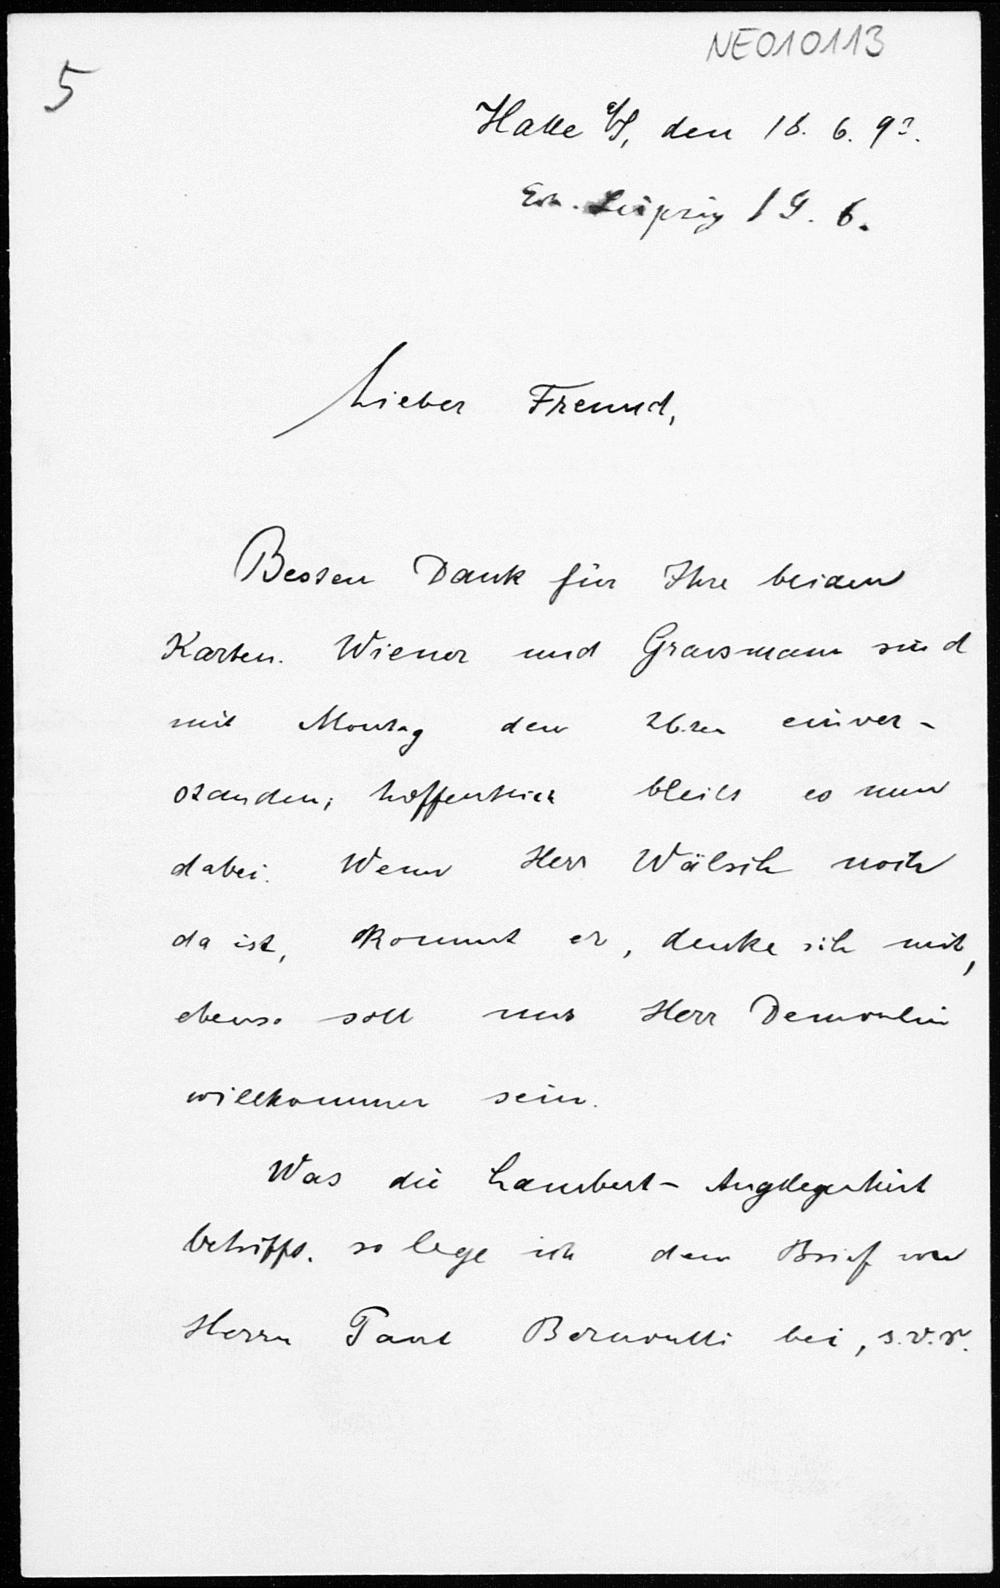 NE010113
5
Halle a/S, den 18. 6. 93.
Erh. Leipzig 19. 6.
Lieber Freund,
Besten Dank für Ihre beiden
Karten. Wiener und Grassmann sind
mit Montag den 26ten einver-
standen; hoffentlich bleibt es nun
dabei. Wenn Herr Wälsch noch
da ist, kommt er, denke ich mit,
ebenso soll uns Herr Demoulin
willkommen sein.
Was die Lambert- Angelegenheit
betrifft. so lege ich den Brief von
Herrn Favre Bernoulli bei, s.v.r.